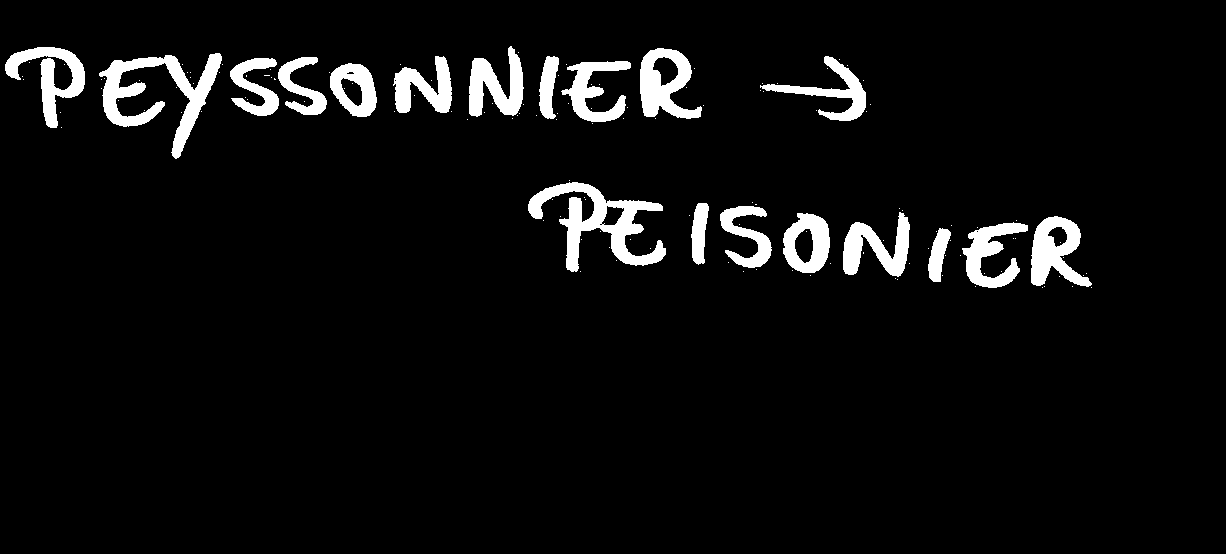 PEYSSONNIER →
PEISONIER